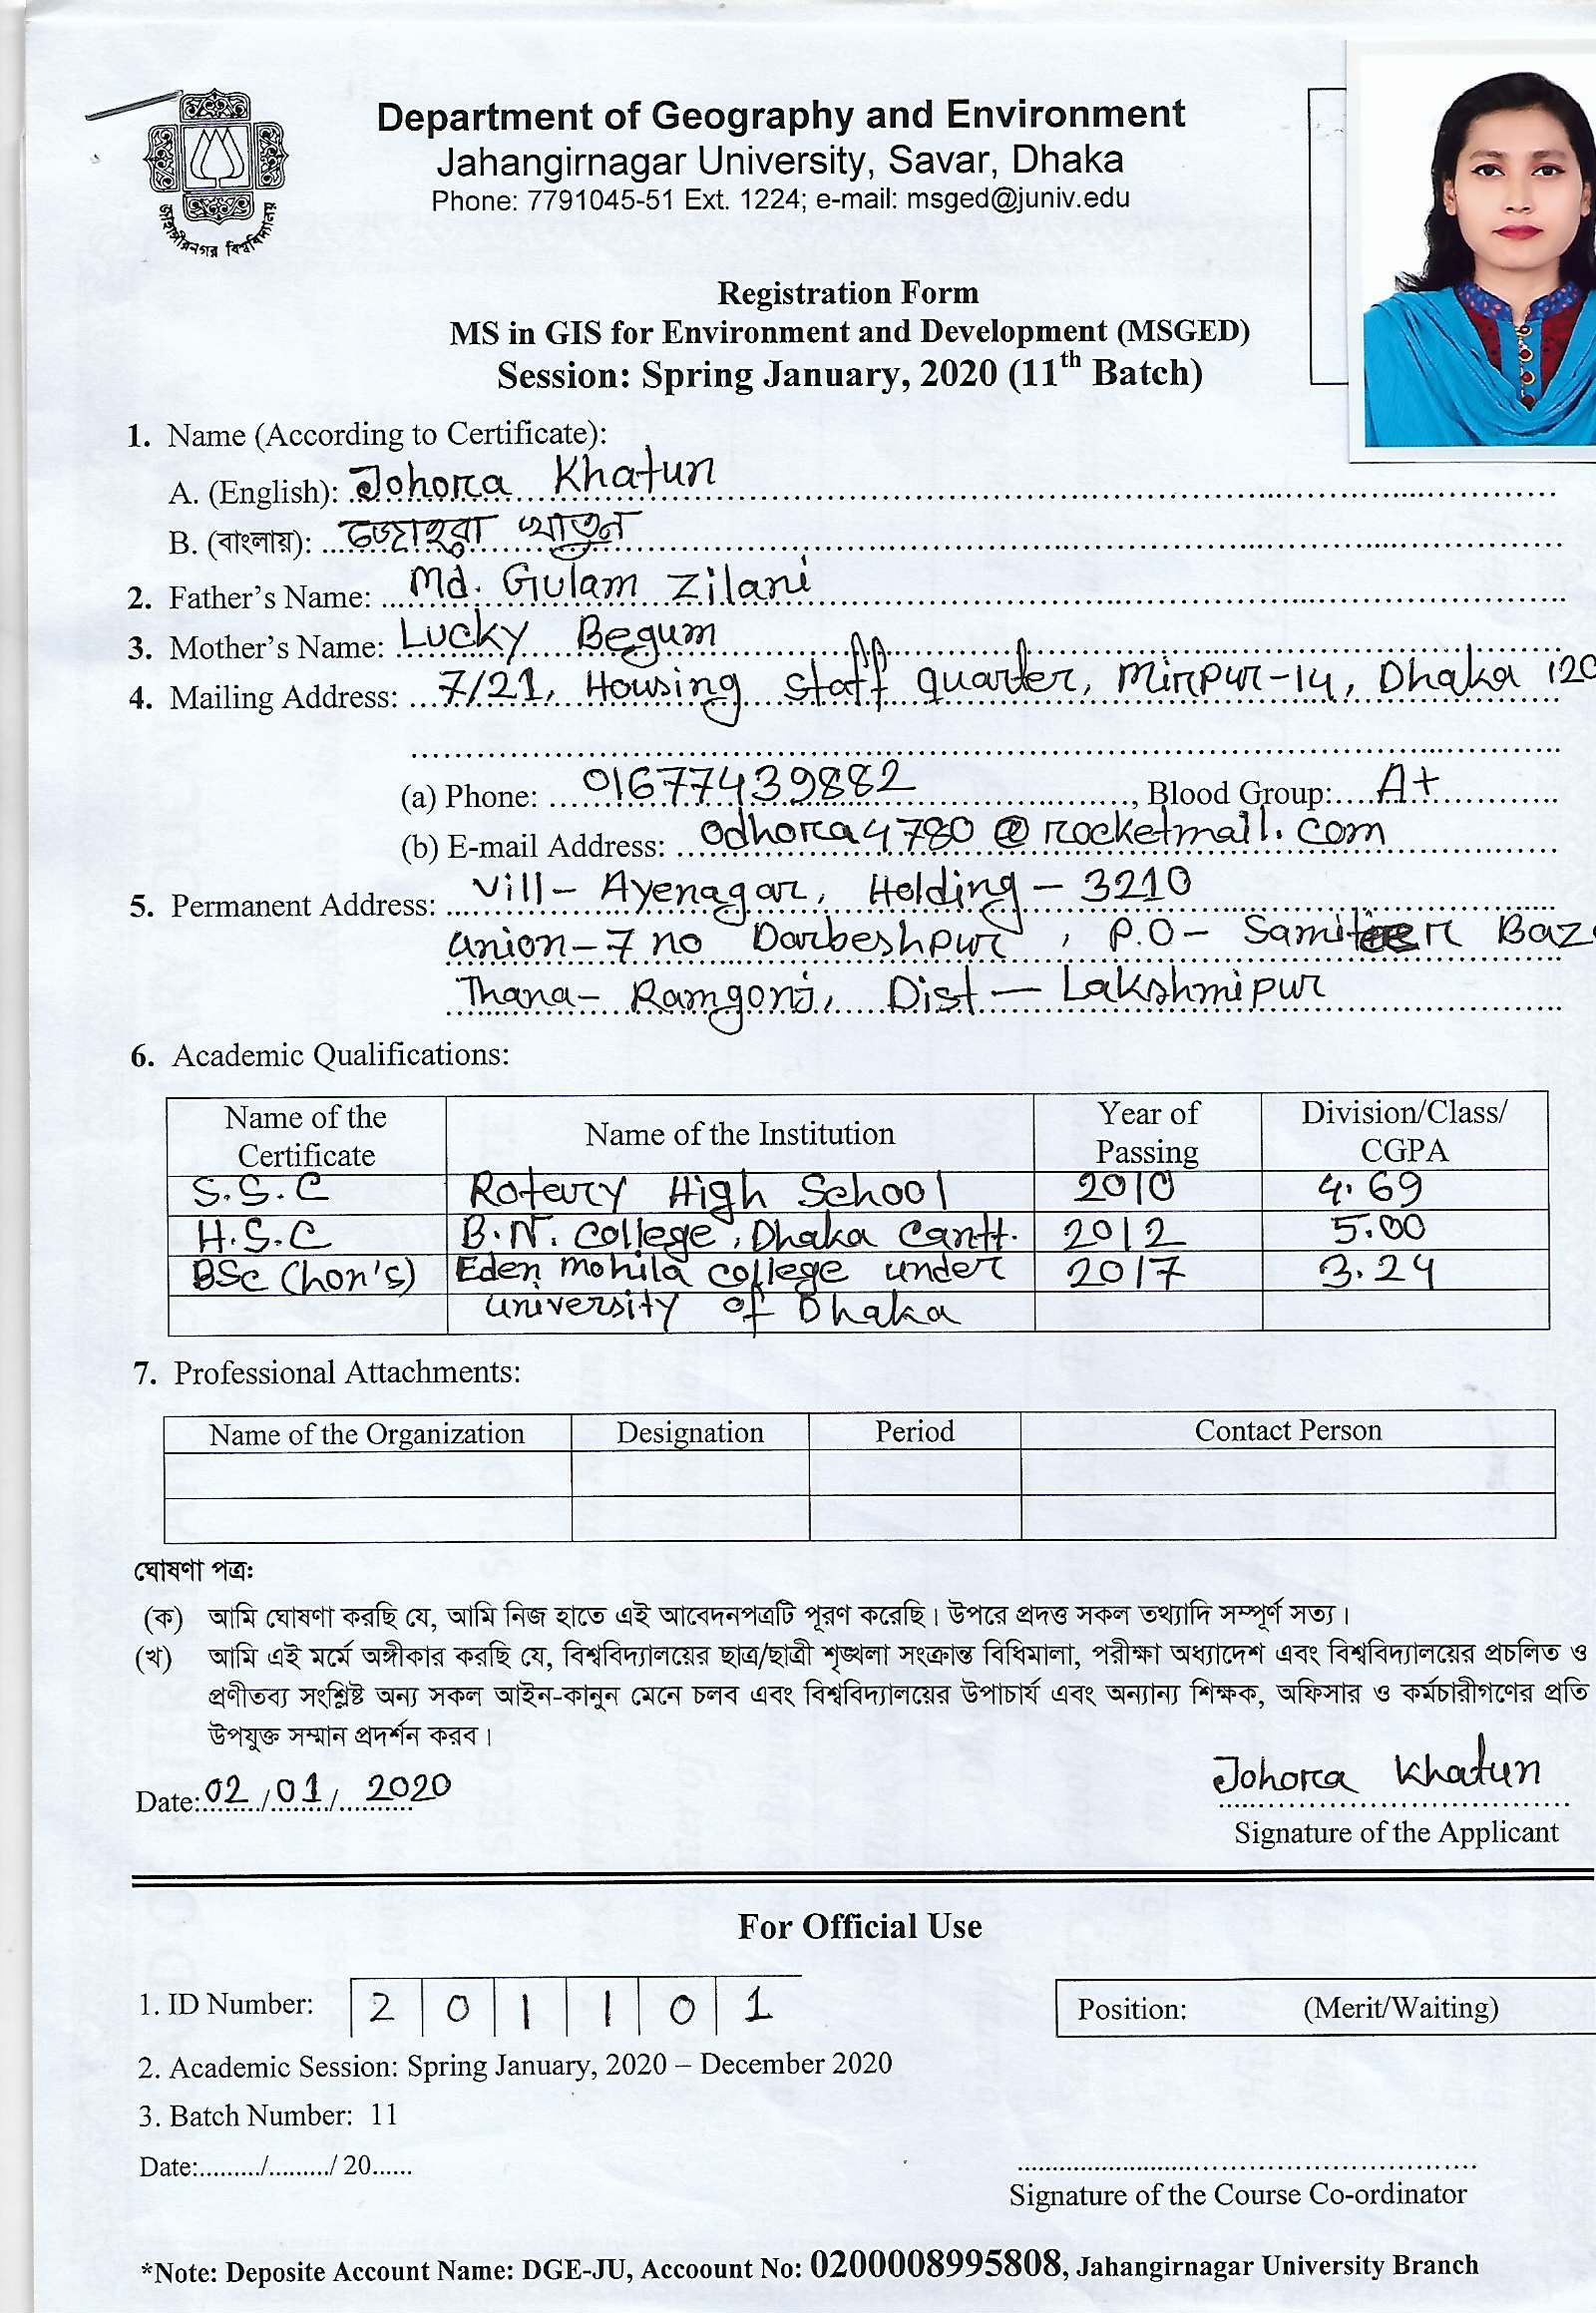 জাহাঙ্গীরনগর বিশ্ববিদ্যালয়
Department of Geography and Environment
Jahangirnagar University, Savar, Dhaka
Phone: 7791045-51 Ext. 1224; e-mail: msged@juniv.edu
Registration Form
MS in GIS for Environment and Development (MSGED)
Session: Spring January, 2020 (11th Batch)
1. Name (According to Certificate):
A. (English): Johora Khatun
B. (বাংলায়): জোহরা খাতুন
2. Father's Name: Md. Gulam Zilani
3. Mother's Name: Lucky Begum
4. Mailing Address: 7/21, Housing staff quarter, Mirpur-14, Dhaka 120
(a) Phone: 01677439882, Blood Group: A+
(b) E-mail Address: odhora4780@rocketmail.com
5. Permanent Address: Vill- Ayenagar, Holding - 3210
Union-7 no Darbeshpur, P.O- Samiteer Baz
Thana- Ramgonj, Dist - Lakshmipur
6. Academic Qualifications:
Name of the Certificate Name of the Institution Year of Passing Division/Class/ CGPA
S.S.C Rotary High School 2010 4.69
H.S.C B.N. College, Dhaka Cantt. 2012 5.00
BSc (hon's) Eden mohila college under 2017 3.24
university of Dhaka
7. Professional Attachments:
Name of the Organization Designation Period Contact Person
ঘোষণা পত্র:
(ক) আমি ঘোষণা করছি যে, আমি নিজ হাতে এই আবেদনপত্রটি পূরণ করেছি। উপরে প্রদত্ত সকল তথ্যাদি সম্পূর্ণ সত্য।
(খ) আমি এই মর্মে অঙ্গীকার করছি যে, বিশ্ববিদ্যালয়ের ছাত্র/ছাত্রী শৃঙ্খলা সংক্রান্ত বিধিমালা, পরীক্ষা অধ্যাদেশ এবং বিশ্ববিদ্যালয়ের প্রচলিত ও
প্রণীতব্য সংশ্লিষ্ট অন্য সকল আইন-কানুন মেনে চলব এবং বিশ্ববিদ্যালয়ের উপাচার্য এবং অন্যান্য শিক্ষক, অফিসার ও কর্মচারীগণের প্রতি
উপযুক্ত সম্মান প্রদর্শন করব।
Date: 02/01/2020 Johora Khatun
Signature of the Applicant
For Official Use
1. ID Number: 2 0 1 1 0 1 Position: (Merit/Waiting)
2. Academic Session: Spring January, 2020 – December 2020
3. Batch Number: 11
Date:........./........./ 20......
Signature of the Course Co-ordinator
*Note: Deposite Account Name: DGE-JU, Accoount No: 0200008995808, Jahangirnagar University Branch